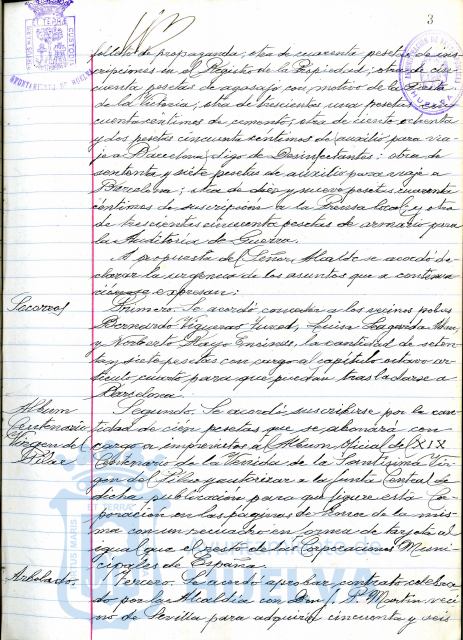 3
folleto de propaganda; otra de cuarenta pesetas de ins
cripciones en el Registro de la Propiedad; otra de cin
cuenta pesetas de agasajo con motivo de la Fiesta
de la Victoria; otra de trescientas una pesetas
cuenta céntimos de cemento; otra de ciento ochenta
y dos pesetas cincuenta céntimos de auxilio para via
je a Barcelona, digo de Desinfectantes; otra de
setenta y siete pesetas de auxilio para viaje a
Barcelona; otra de diez y nueve pesetas cuarenta
céntimos de suscripción a la Prensa local, y otra
de trescientas cincuenta pesetas de armario para
la Auditoria de Guerra.
A propuesta del Señor Alcalde se acordó de
clarar la urgencia de los asuntos que a continua
ción se expresan:
Socorros
Primero. Se acordó conceder a los vecinos pobres
Bernardo Vigueras Luisa
y Norberto Mayo la cantidad de seten
ta y siete pesetas con cargo al capítulo octavo ar
tículo cuarto para que puedan trasladarse a
Barcelona.
Album
Centenario
Virgen del
Pilar
Segundo. Se acordó suscribirse por la can
tidad de cien pesetas que se abonará con
cargo a imprevistos al Album Oficial del XIX
Centenario de la Venida de la Santísima Vir
gen del Pilar y autorizar a la Junta Central de
dicha publicación para que figure esta Cor
poración en las páginas de honor de la mis
ma con un recuadro en forma de tarjeta al
igual que el resto de las Corporaciones Muni
cipales de España.
Arbolado.
Tercero. Se acordó aprobar contrato celebra
do por la Alcaldía con Don J. P. Martin veci
no de Sevilla para adquirir cincuenta y seis